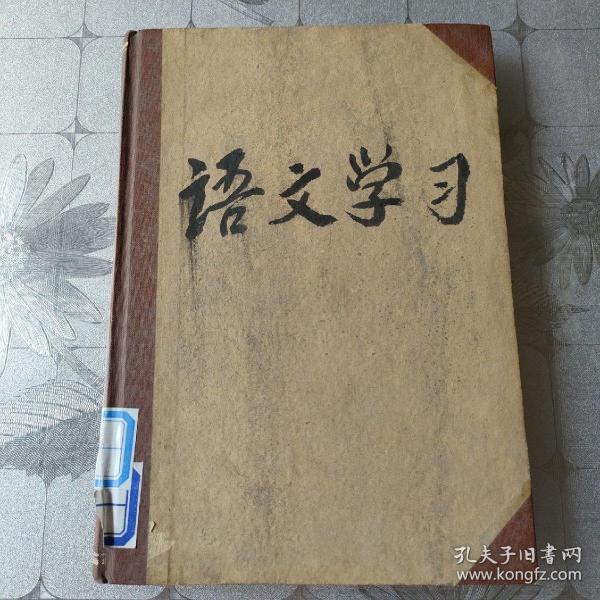 語文学习
孔夫子旧書网
www.kongfz.com